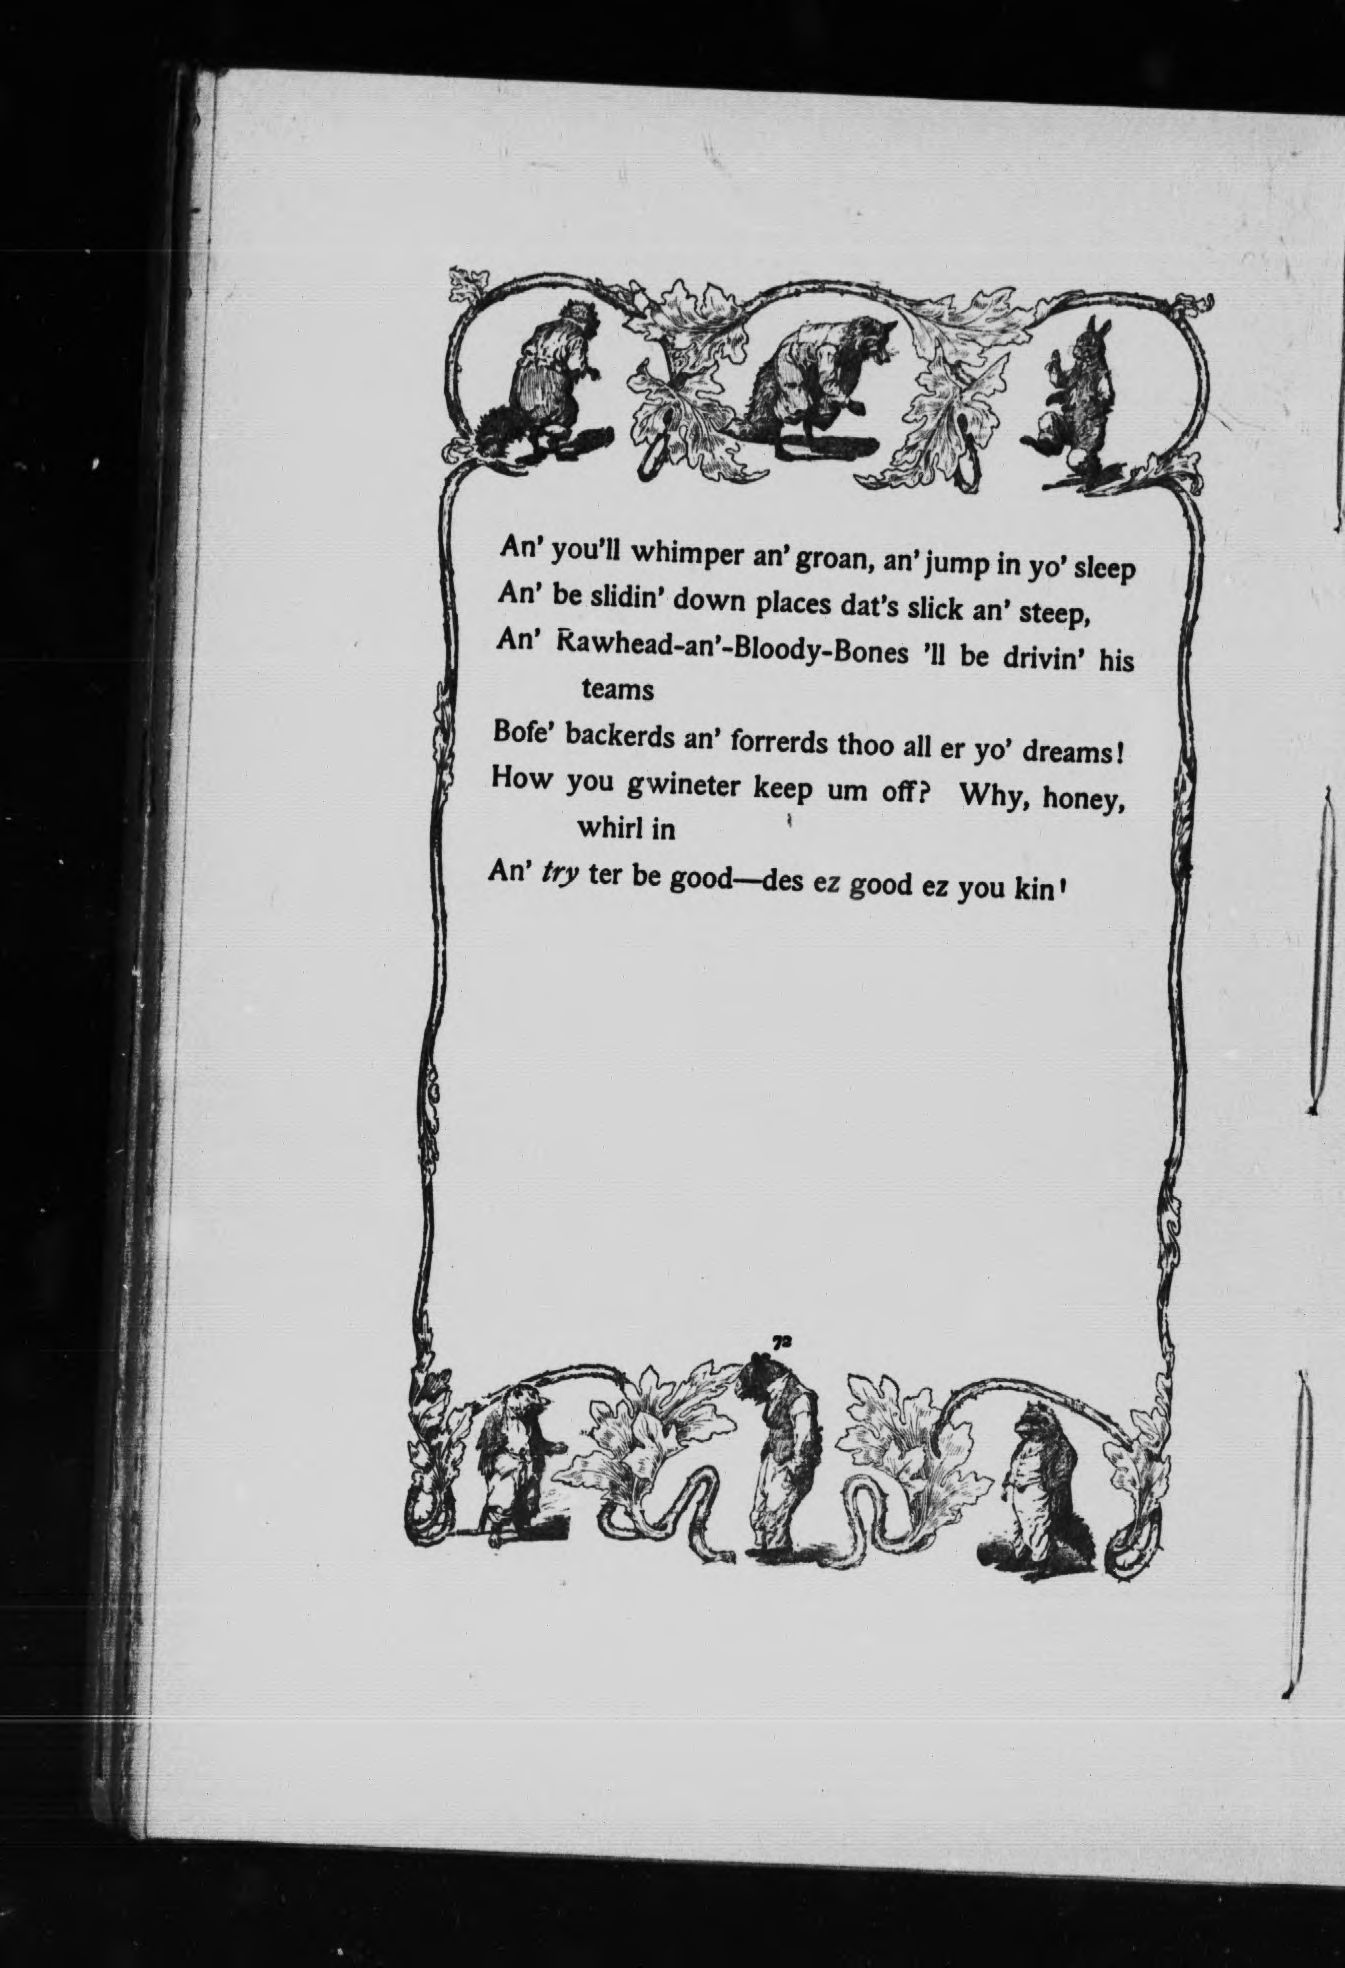 An' you'll whimper an' groan, an' jump in yo' sleep
An' be slidin' down places dat's slick an' steep,
An' Rawhead-an'-Bloody-Bones 'll be drivin' his
teams
Bofe' backerds an' forrerds thoo all er yo' dreams!
How you gwineter keep um off? Why, honey,
whirl in
An' try ter be good—des ez good ez you kin!
72